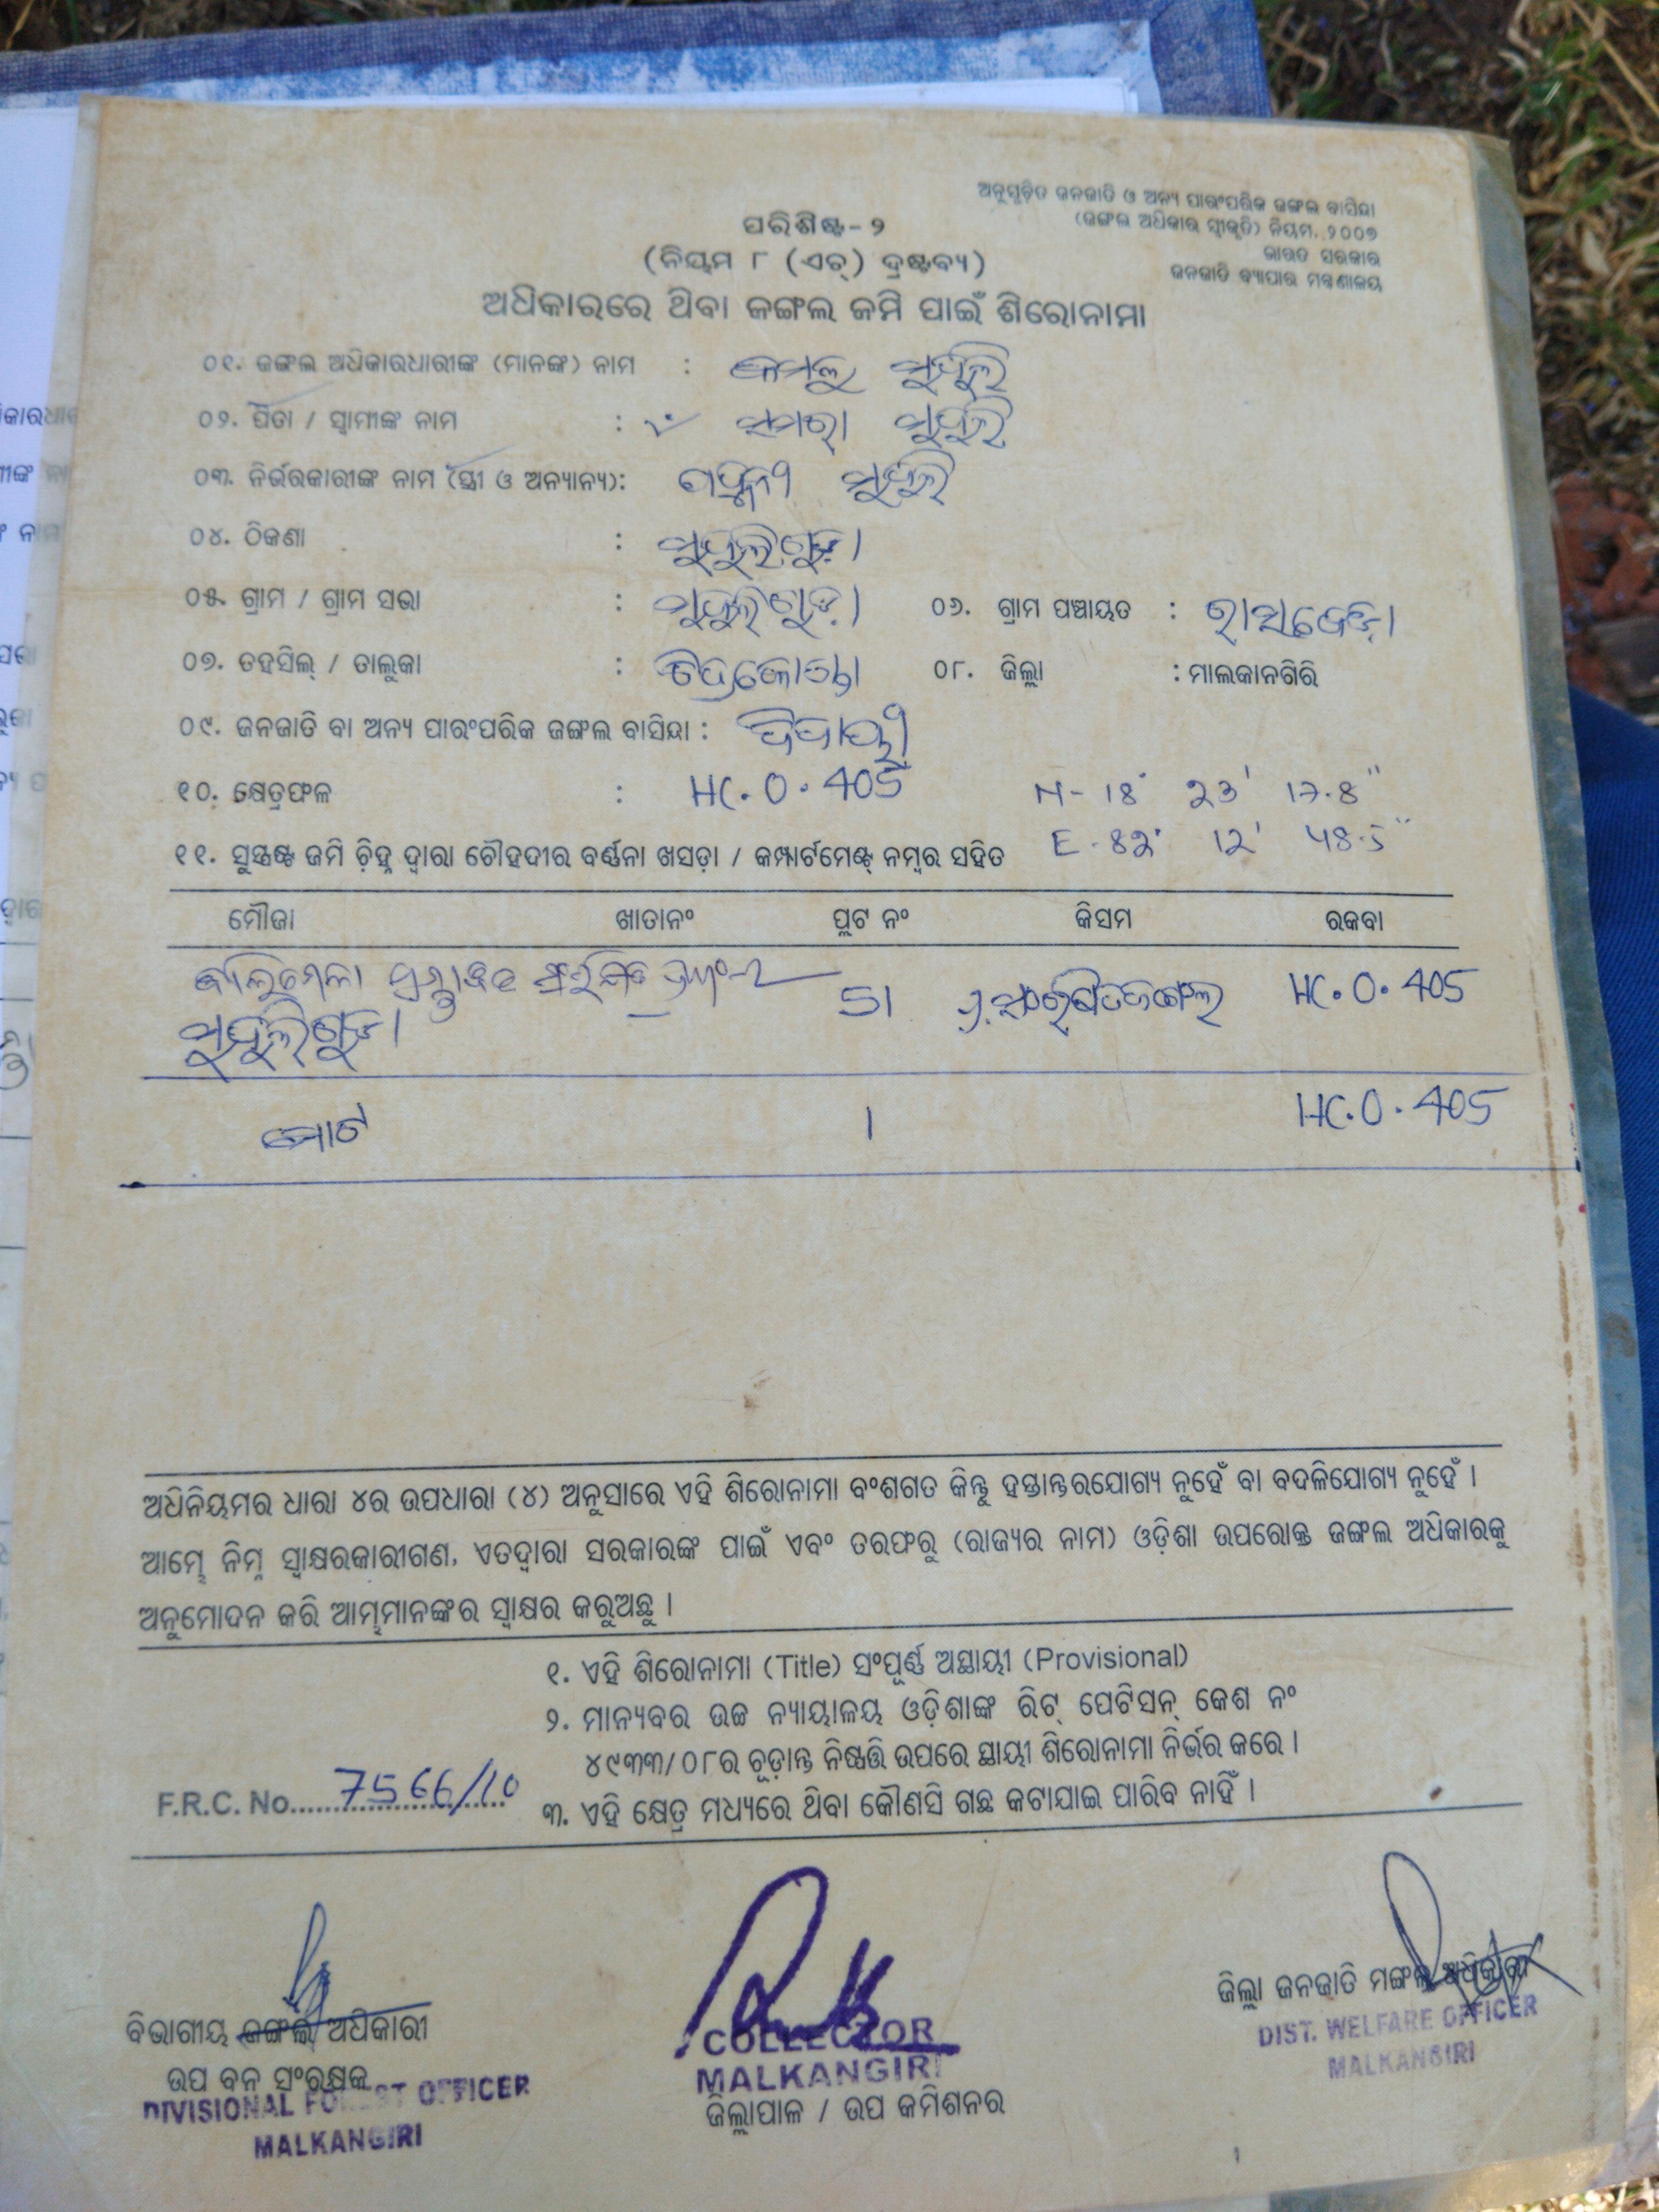 ଅନୁସୂଚିତ ଜନଜାତି ଓ ଅନ୍ୟ ପାରଂପରିକ ଜଙ୍ଗଲ ବାସିନ୍ଦା
(ଜଙ୍ଗଲ ଅଧିକାର ସ୍ୱୀକୃତି) ନିୟମ, ୨୦୦୭
ଭାରତ ସରକାର
ଜନଜାତି ବ୍ୟାପାର ମନ୍ତ୍ରଣାଳୟ
ପରିଶିଷ୍ଟ-୨
(ନିୟମ ୮ (ଏଚ୍) ଦ୍ରଷ୍ଟବ୍ୟ)
ଅଧିକାରରେ ଥିବା ଜଙ୍ଗଲ ଜମି ପାଇଁ ଶିରୋନାମା
୦୧. ଜଙ୍ଗଲ ଅଧିକାରଧାରୀଙ୍କ (ମାନଙ୍କ) ନାମ : କମଲୁ ମୁଦୁଲି
୦୨. ପିତା / ସ୍ୱାମୀଙ୍କ ନାମ : ସମରା ମୁଦୁଲି
୦୩. ନିର୍ଭରକାରୀଙ୍କ ନାମ (ସ୍ତ୍ରୀ ଓ ଅନ୍ୟାନ୍ୟ): ମୁଦୁଲି
୦୪. ଠିକଣା : ମୁଦୁଲିଗୁଡ଼ା
୦୫. ଗ୍ରାମ / ଗ୍ରାମ ସଭା : ମୁଦୁଲିଗୁଡ଼ା ୦୬. ଗ୍ରାମ ପଞ୍ଚାୟତ :
୦୭. ତହସିଲ୍ / ତାଲୁକା : ଚିତ୍ରକୋଣ୍ଡା ୦୮. ଜିଲ୍ଲା : ମାଲକାନଗିରି
୦୯. ଜନଜାତି ବା ଅନ୍ୟ ପାରଂପରିକ ଜଙ୍ଗଲ ବାସିନ୍ଦା : ଦିଦାୟୀ
୧୦. କ୍ଷେତ୍ରଫଳ : HC. 0. 405 N- 18° 23' 17.8"
E- 82° 12' 48.5"
୧୧. ସୁସ୍ପଷ୍ଟ ଜମି ଚିହ୍ନ ଦ୍ୱାରା ଚୌହଦୀର ବର୍ଣ୍ଣନା ଖସଡ଼ା / କମ୍ପାର୍ଟମେଣ୍ଟ୍ ନମ୍ବର ସହିତ
ମୌଜା ଖାତାନଂ ପ୍ଲଟ ନଂ କିସମ ରକବା
ପ୍ରସ୍ତାବିତ ସଂରକ୍ଷିତ 51 HC. 0. 405
ମୁଦୁଲିଗୁଡ଼ା
ମୋଟ 1 HC. 0. 405
ଅଧିନିୟମର ଧାରା ୪ର ଉପଧାରା (୪) ଅନୁସାରେ ଏହି ଶିରୋନାମା ବଂଶଗତ କିନ୍ତୁ ହସ୍ତାନ୍ତରଯୋଗ୍ୟ ନୁହେଁ ବା ବଦଳିଯୋଗ୍ୟ ନୁହେଁ ।
ଆମ୍ଭେ ନିମ୍ନ ସ୍ୱାକ୍ଷରକାରୀଗଣ, ଏତଦ୍ୱାରା ସରକାରଙ୍କ ପାଇଁ ଏବଂ ତରଫରୁ (ରାଜ୍ୟର ନାମ) ଓଡ଼ିଶା ଉପରୋକ୍ତ ଜଙ୍ଗଲ ଅଧିକାରକୁ
ଅନୁମୋଦନ କରି ଆମ୍ଭମାନଙ୍କର ସ୍ୱାକ୍ଷର କରୁଅଛୁ ।
୧. ଏହି ଶିରୋନାମା (Title) ସଂପୂର୍ଣ୍ଣ ଅସ୍ଥାୟୀ (Provisional)
୨. ମାନ୍ୟବର ଉଚ୍ଚ ନ୍ୟାୟାଳୟ ଓଡ଼ିଶାଙ୍କ ରିଟ୍ ପେଟିସନ୍ କେଶ ନଂ
୪୯୩୩/୦୮ର ଚୂଡ଼ାନ୍ତ ନିଷ୍ପତ୍ତି ଉପରେ ସ୍ଥାୟୀ ଶିରୋନାମା ନିର୍ଭର କରେ ।
F.R.C. No. 7566/10
୩. ଏହି କ୍ଷେତ୍ର ମଧ୍ୟରେ ଥିବା କୌଣସି ଗଛ କଟାଯାଇ ପାରିବ ନାହିଁ ।
ବିଭାଗୀୟ ଜଙ୍ଗଲ ଅଧିକାରୀ
ଉପ ବନ ସଂରକ୍ଷକ
DIVISIONAL FOREST OFFICER
MALKANGIRI
COLLECTOR
MALKANGIRI
ଜିଲ୍ଲାପାଳ / ଉପ କମିଶନର
ଜିଲ୍ଲା ଜନଜାତି ମଙ୍ଗଳ ଅଧିକାରୀ
DIST. WELFARE OFFICER
MALKANGIRI